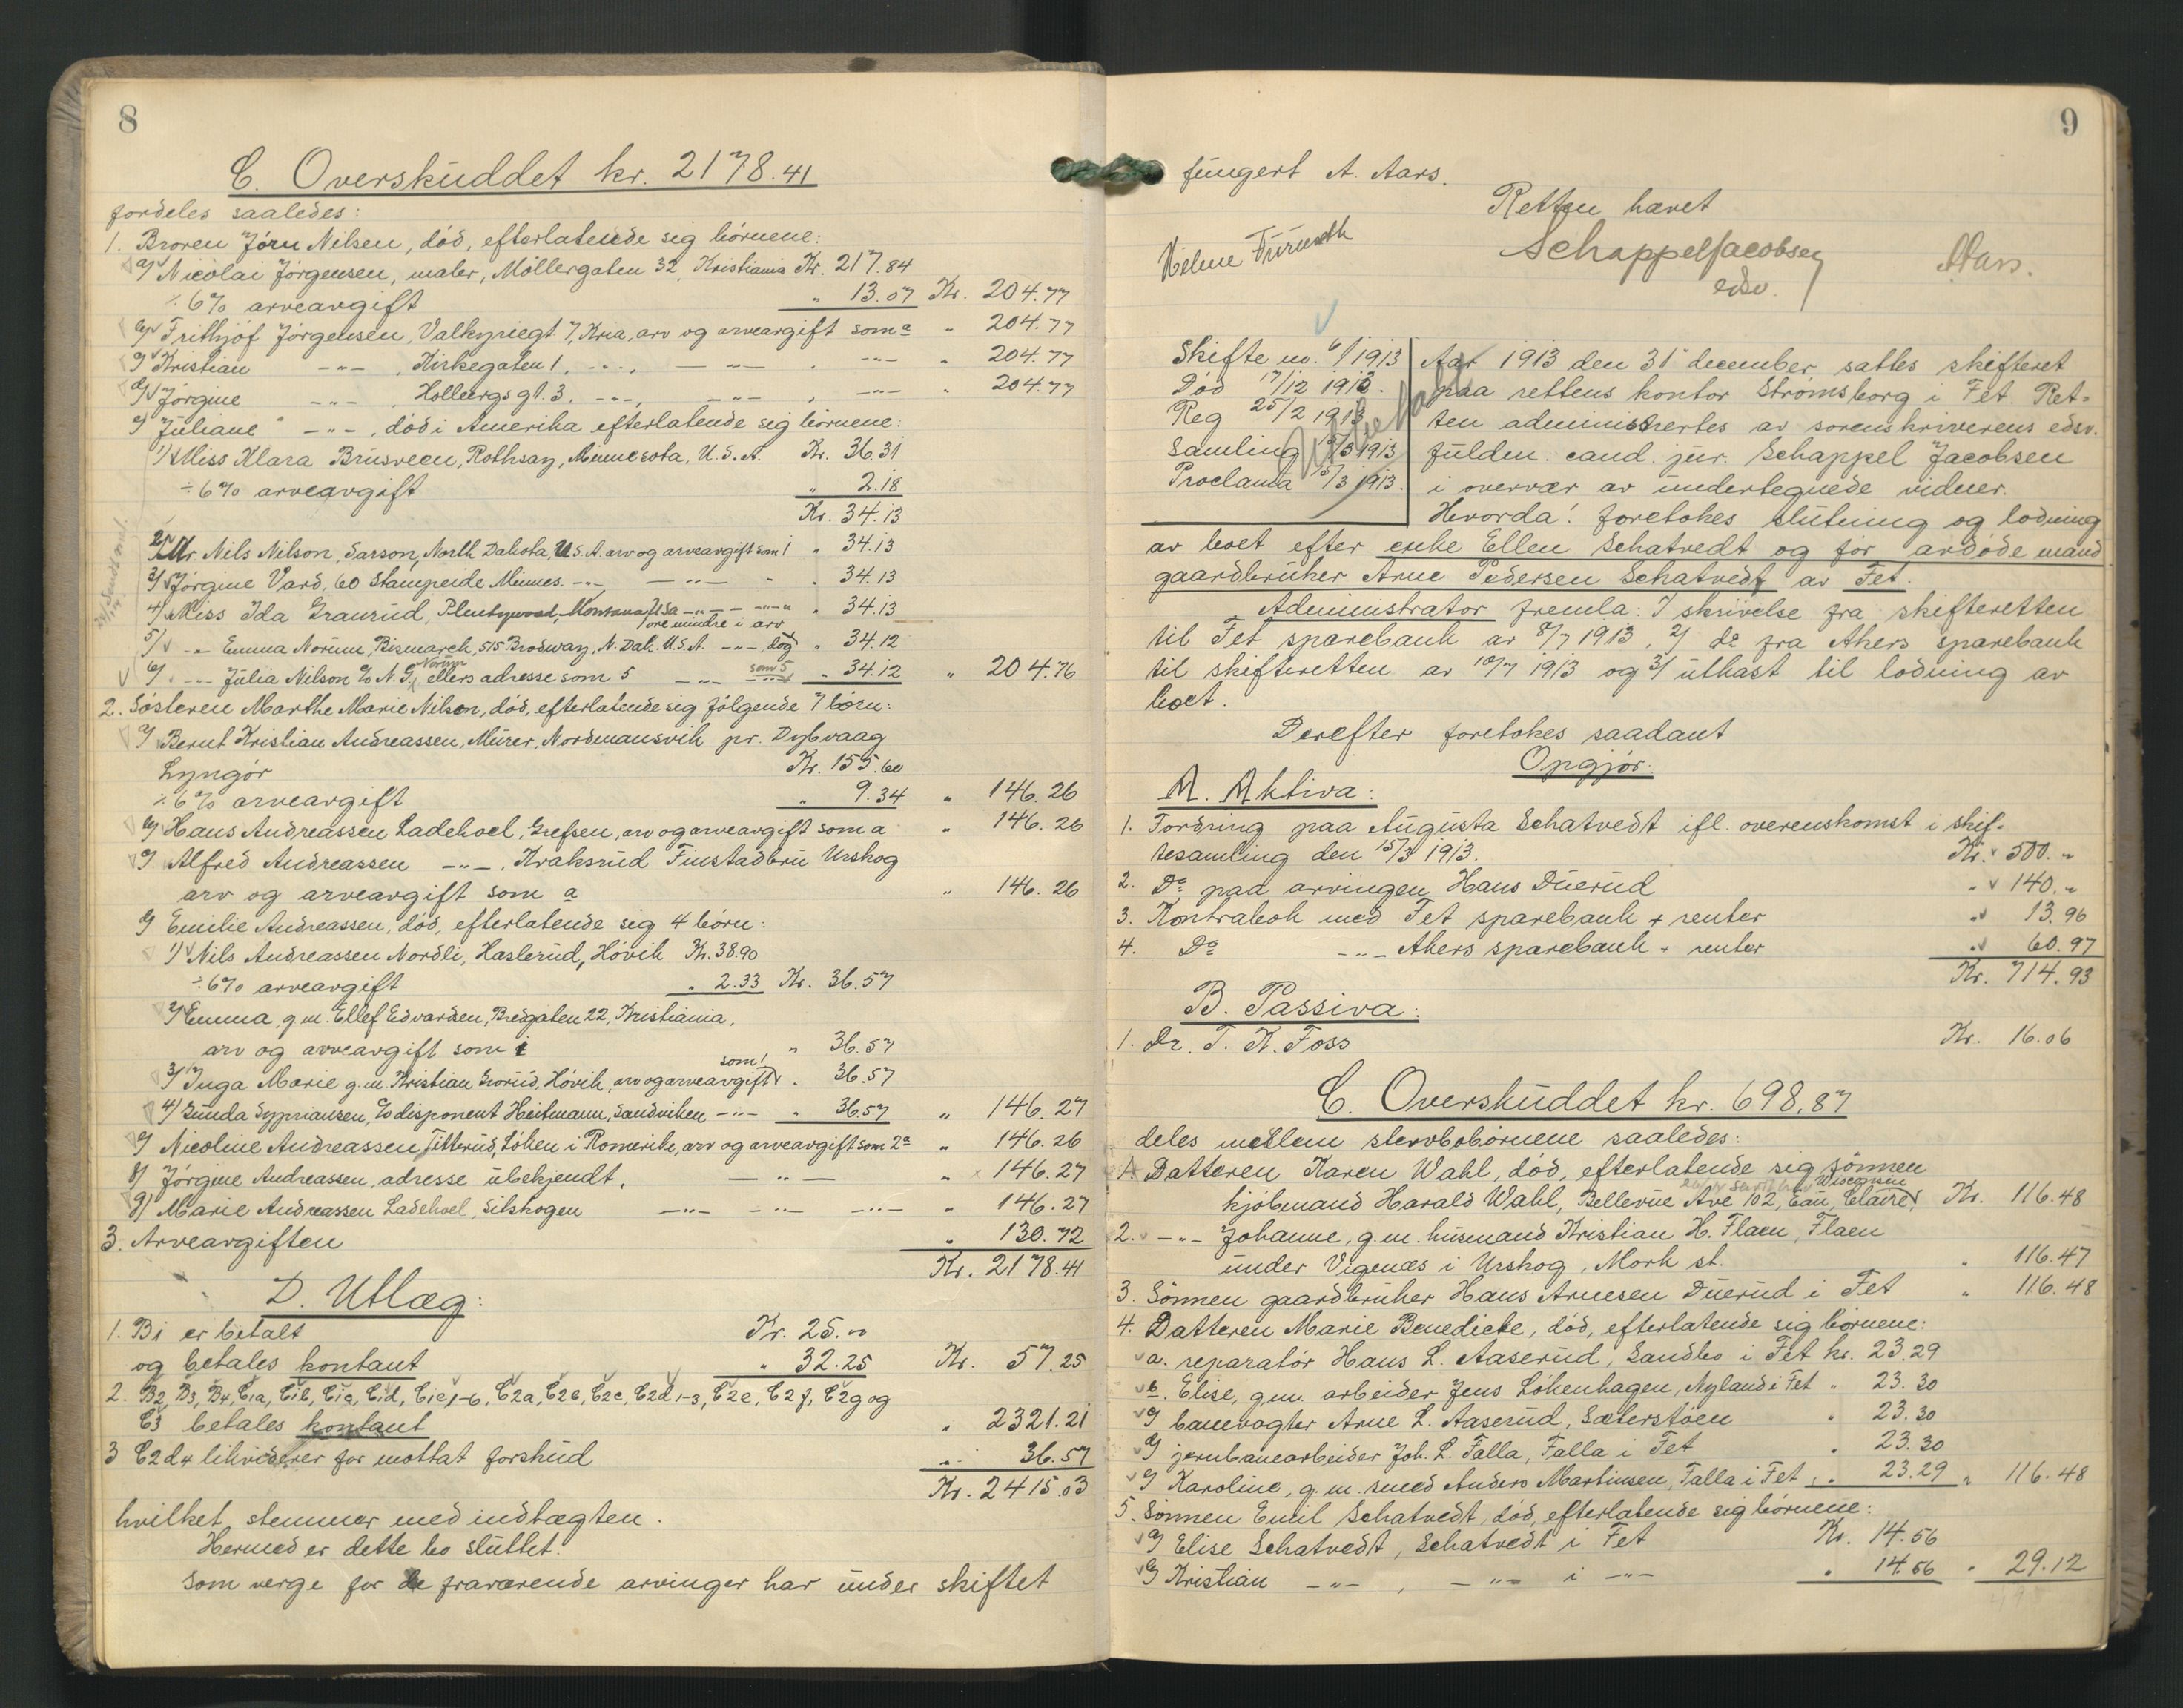 8
C. Overskuddet kr. 2178.41
fordeles saaledes:
1. Broren Jørn Nilsen, død, efterlatende sig börnene:
a/ Nicolai Jørgensen, maler, Möllergaten 32, Kristiania Kr. 217.84
÷ 6% arveavgift " 13.07 Kr. 204.77
b/ Frithjof Jörgensen, Valkyriegt 7, Kria, arv og arveavgift som a " 204.77
c/ Kristian -"- , Kirkegaten 1, -"-, -"- , -"- " 204.77
d/ Jörgine -"- , Holbergs gt. 3, -"-, -"- , -"- " 204.77
e/ Juliane -"- , död i Amerika efterlatende sig börnene:
1/ Miss Klara Brusveen, Rothsay, Minnesota, U.S.A. Kr. 36.31
÷ 6% arveavgift " 2.18
Kr. 34.13
2/ Mr Nils Nilson, Sarson, North Dakota, U.S.A. arv og arveavgift som 1 " 34.13
3/ Jörgine Vard, 60 Stampeide Minnes. -"- -"- " " 34.13
4/ Miss Ida Graurud, Plentywood, Montana, Usa -"- -"- " 34.13
1 øre mindre i arv
5/ -"- Emma Norum, Bismarck, 515 Brodway, N. Dak. U.S.A. -"- dog " 34.12
6/ -"- Julia Nilson c/o N. G. Norum ellers adresse som 5 -"- som 5 " 34.12 " 204.76
2. Søsteren Marthe Marie Nilsen, død, efterlatende sig følgende 7 børn:
a/ Bernt Kristian Andreassen, Murer, Nordmansvik pr. Dybvaag
Lyngör Kr. 155.60
÷ 6% arveavgift " 9.34 " 146.26
b/ Hans Andreassen Ladehoel, Grefsen, arv og arveavgift som a " 146.26
c/ Alfred Andreassen -"- , Kraksrud Finstadbru Urskog
arv og arveavgift som a " 146.26
d/ Emilie Andreassen, död, efterlatende sig 4 börn:
1/ Nils Andreassen Nordli, Haslerud, Hövik Kr. 38.90
÷ 6% arveavgift " 2.33 Kr. 36.57
2/ Emma, g.m. Ellef Edvardsen, Bredgaten 22, Kristiania,
arv og arveavgift som 1 " 36.57
3/ Inga Marie g.m. Kristian Grorud, Hövik, arv og arveavgift som 1 " 36.57
4/ Gunda Sypriansen, c/o disponent Heitmann, Sandviken -"- " 36.57 " 146.27
e/ Nicoline Andreassen, Titterud, Löken i Romerike, arv og arveavgift som 2a " 146.26
f/ Jörgine Andreassen, adresse ubekjendt, -"- " 146.27
g/ Marie Andreassen Ladehoel, Sitskogen -"- -"- -"- " 146.27
3. Arveavgiften " 130.72
Kr. 2178.41
D. Utlæg:
1. B1 er betalt Kr. 25.00
og betales kontant " 32.25 Kr. 57.25
2. B2, B3, B4, C1a, C1b, C1c, C1d, C1e1-6, C2a, C2b, C2c, C2d1-3, C2e, C2f, C2g og
C3 betales kontant " 2321.21
3 C2d4 likviderer for mottat forskud " 36.57
Kr. 2415.03
hvilket stemmer med indtægten.
Hermed er dette bo sluttet.
Som verge for de fraværende arvinger har under skiftet
9
fungert A. Aars.
Retten hævet
Schappel Jacobsen
edsv.
Aars.
Helene Furuseth
Skifte no. 6/1913
Död 17/12 1912.
Reg 25/2 1913
Samling 15/3 1913
Proclama 15/3 1913.
Aar 1913 den 31 december sattes skifteret
paa rettens kontor Strømsborg i Fet. Ret-
ten administrertes av sorenskriverens edsv.
fuldm. cand. jur. Schappel Jacobsen
i overvær av undertegnede vidner.
Hvorda! foretokes slutning og lodning
av boet efter enke Ellen Schatvedt og før avdøde mand
gaardbruker Arne Pedersen Schatvedt av Fet.
Administrator fremla: 1/ skrivelse fra skifteretten
til Fet sparebank av 8/7 1913, 2/ do fra Akers sparebank
til skifteretten av 10/7 1913 og 3/ utkast til lodning av
boet.
Derefter foretokes saadant
Opgjør:
A. Aktiva:
1. Fordring paa Augusta Schatvedt ifl. overenskomst i skif-
tesamling den 15/3 1913. Kr. 500.-
2. Do paa arvingen Hans Duerud " 140.-
3. Kontrabok med Fet sparebank + renter " 13.96
4. Do -"- Akers sparebank + renter " 60.97
Kr. 714.93
B. Passiva:
1. Dr. T. K. Foss Kr. 16.06
C. Overskuddet kr. 698.87
deles mellem stervbobörnene saaledes:
1. Datteren Karen Wahl, död, efterlatende sig sönnen
Wisconsin
kjöbmand Harald Wahl, Bellevue Ave 102, Eau Claire, Kr. 116.48
2. -"- Johanne, g.m. husmand Kristian H. Flaen, Flaen
under Vigenæs i Urskog, Mork st. " 116.47
3. Sönnen gaardbruker Hans Arnesen Duerud i Fet " 116.48
4. Datteren Marie Benedicte, död, efterlatende sig börnene:
a. reparatör Hans L. Aaserud, Sandbo i Fet kr. 23.29
b. Elise, g.m. arbeider Jens Lökenhagen, Nyland i Fet " 23.30
c/ banevogter Arne L. Aaserud, Sæterstöen " 23.30
d/ jernbanearbeider Joh. L. Falla, Falla i Fet " 23.30
e/ Karoline, g.m. smed Anders Martinsen, Falla i Fet " 23.29 " 116.48
5. Sönnen Emil Schatvedt, död, efterlatende sig börnene:
a/ Elise Schatvedt, Schatvedt i Fet Kr. 14.56
b/ Kristian -"- , -"- i -"- " 14.56 " 29.12